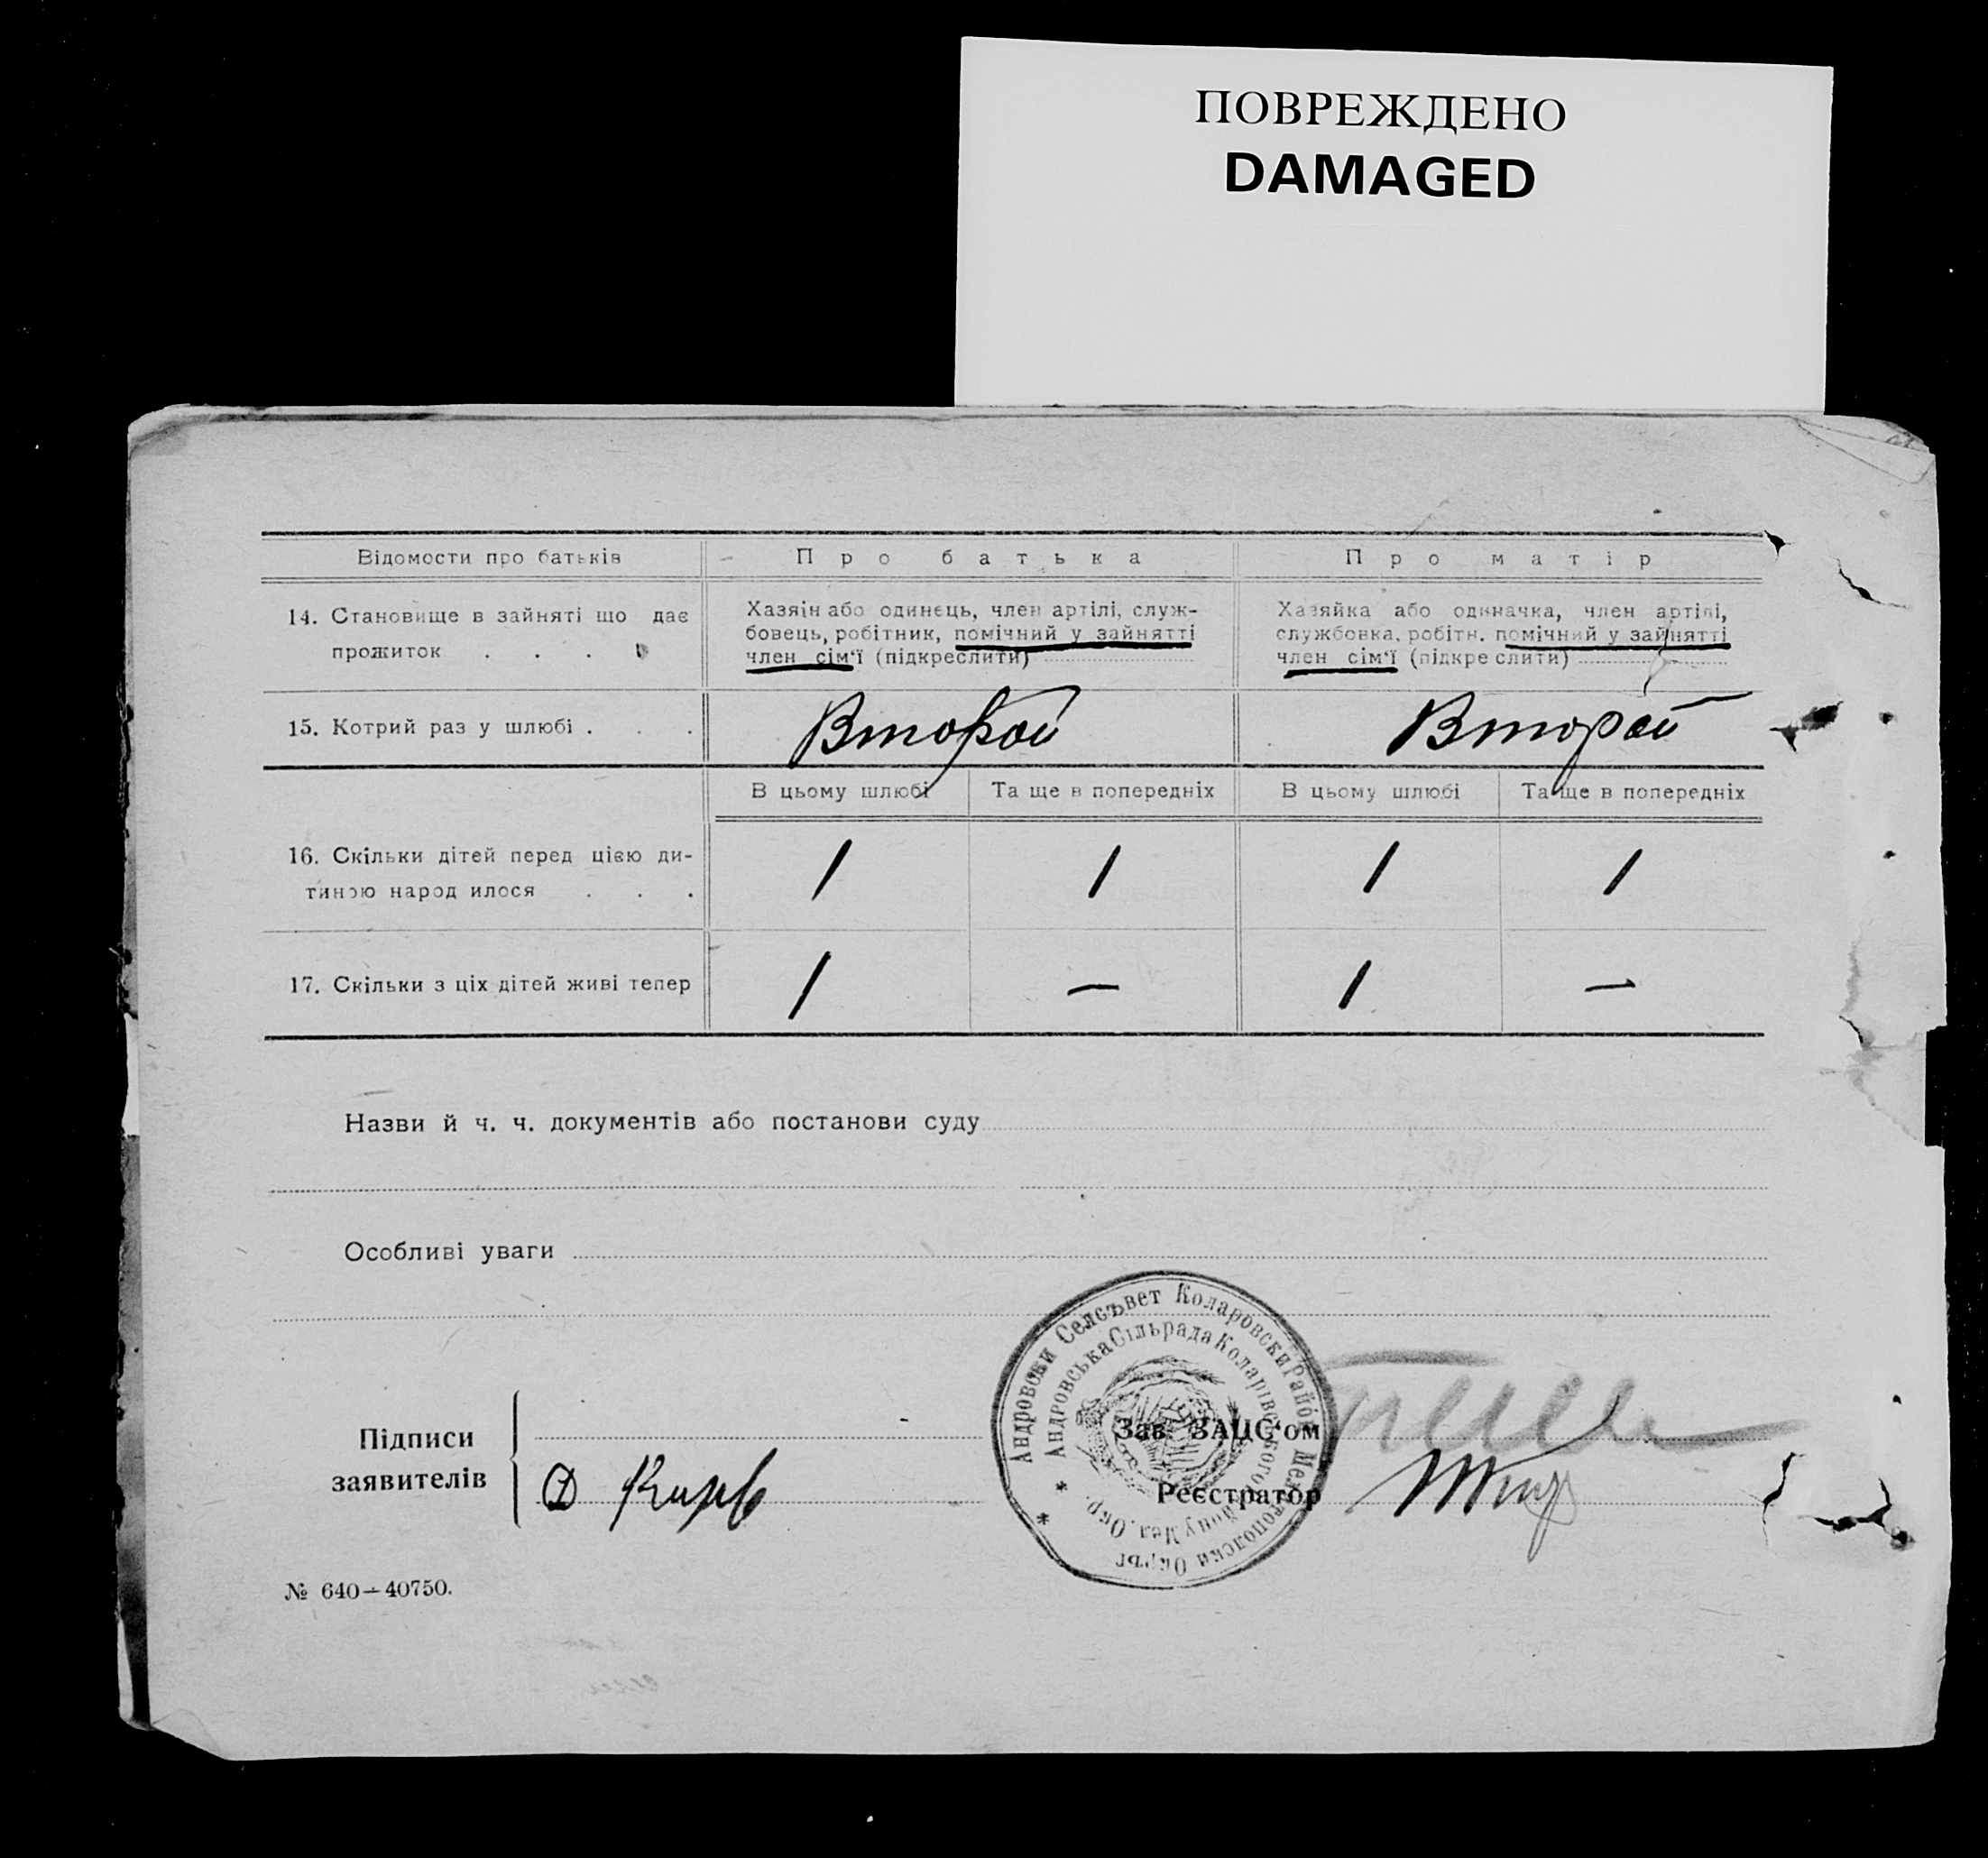 ПОВРЕЖДЕНО
DAMAGED
Відомости про батьків
Про батька
Про матір
14. Становище в зайняті що дає
прожиток . . .
Хазяїн або одинець, член артілі, служ-
бовець, робітник, помічний у зайнятті
член сім'ї (підкреслити)
Хазяйка або одиначка, член артілі,
службовка, робітн. помічний у зайнятті
член сім'ї (підкреслити)
15. Котрий раз у шлюбі . . .
Второй
Второй
В цьому шлюбі
Та ще в попередніх
В цьому шлюбі
Та ще в попередніх
16. Скільки дітей перед цією ди-
тиною народилося . . .
1
1
1
1
17. Скільки з ціх дітей живі тепер
1
—
1
—
Назви й ч. ч. документів або постанови суду
Особливі уваги
Андровски Селсъвет Коларовски Район Мелитополски Окръг
Андровська Сільрада Коларівського Району Мел. Окр.
Підписи
заявителів
Д
Зав. ЗАЦС'ом
Реєстратор
№ 640—40750.